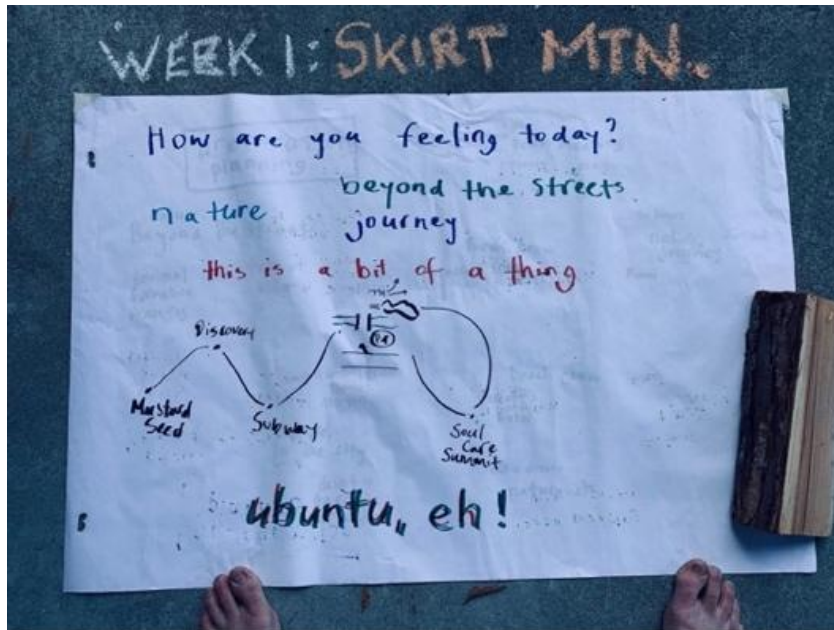 WEEK 1: SKIRT MTN.
How are you feeling today?
beyond the streets
nature
journey
this is a bit of a thing
Discovery
Mustard
Seed
Subway
Soul
Care
Summit
ubuntu,, eh!